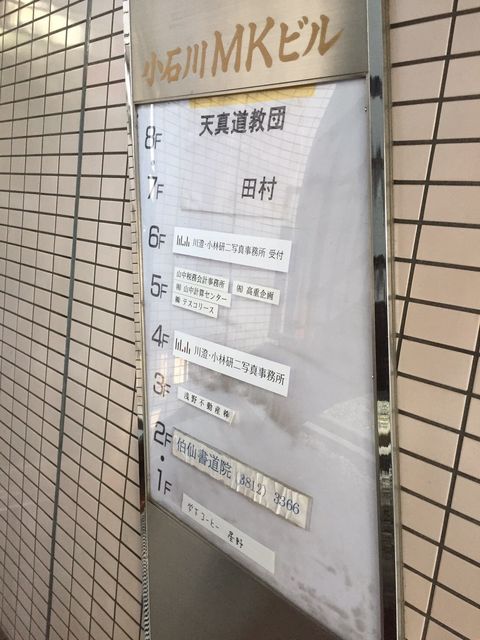 小石川MKビル
8F 天真道教団
7F 田村
6F 川澄・小林研二写真事務所 受付
5F 山中税務会計事務所 ㈲高重企画
㈲山中計算センター
㈱テスコリース
4F 川澄・小林研二写真事務所
3F 浅野不動産㈱
2F・1F 伯仙書道院 (3812) 3366
やすコーヒー